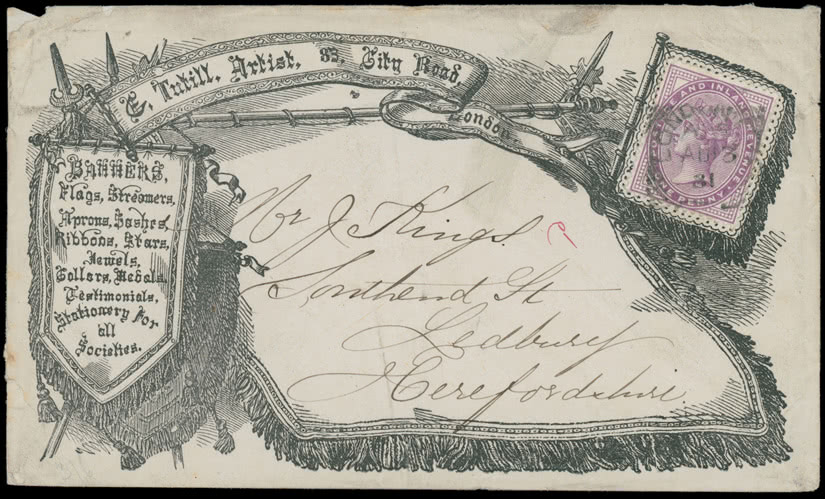 E. Tutill, Artist, 83, City Road,
London
BANNERS,
Flags, Streamers,
Aprons, Sashes,
Ribbons, Stars,
Jewels,
Collars, Medals,
Testimonials,
Stationery for
all
Societies.
Mr J Kings
Southend St
Ledbury
Herefordshire
AND INLAND REVENUE
ONE PENNY
LONDON
AU 3
81